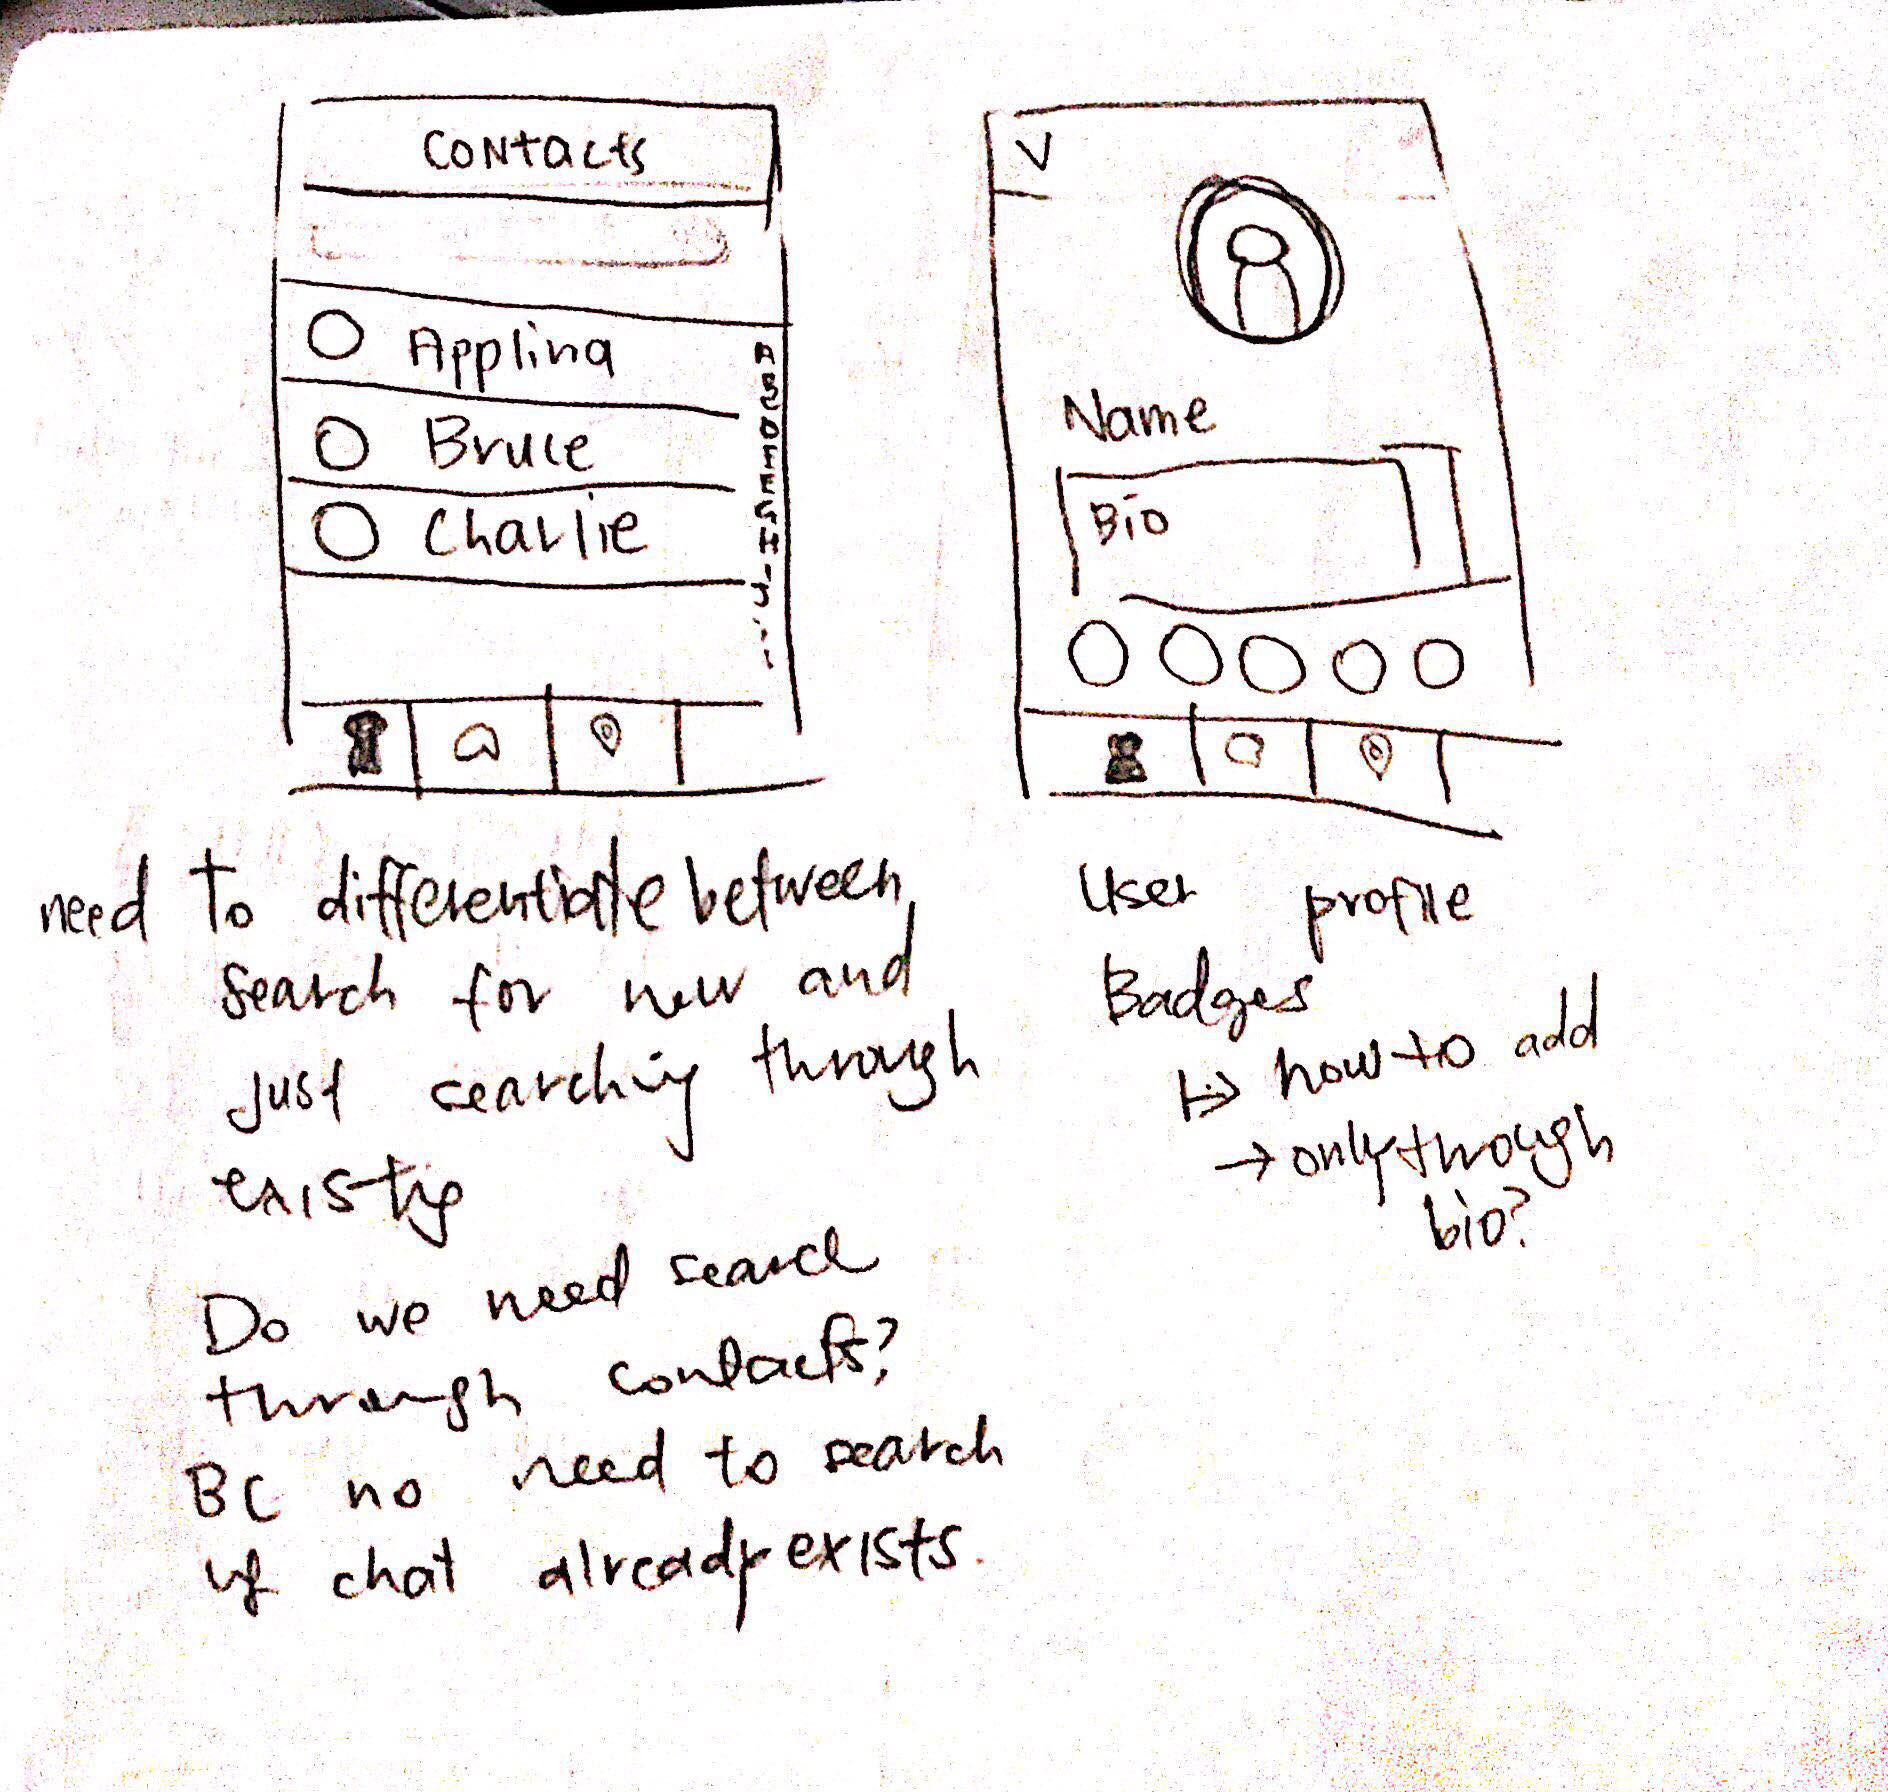 Contacts
Applina
Bruce
Charlie
A
B
C
D
E
F
G
H
I
J
need to differentiate between
search for new and
just searching through
existing
Do we need search
through contacts?
BC no need to search
if chat already exists.
V
Name
Bio
User profile
Badges
how to add
→ only through
bio?